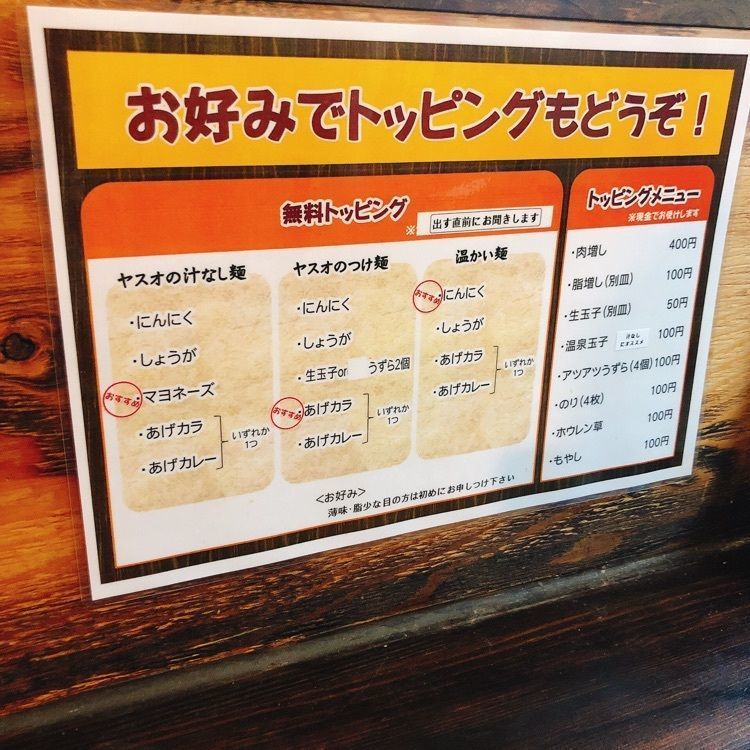 お好みでトッピングもどうぞ！
無料トッピング
※ 出す直前にお聞きします
ヤスオの汁なし麺
・にんにく
・しょうが
おすすめ ・マヨネーズ
・あげカラ
・あげカレー
いずれか
1つ
ヤスオのつけ麺
・にんにく
・しょうが
・生玉子or うずら2個
おすすめ ・あげカラ
・あげカレー
いずれか
1つ
温かい麺
おすすめ ・にんにく
・しょうが
・あげカラ
・あげカレー
いずれか
1つ
<お好み>
薄味・脂少な目の方は初めにお申しつけ下さい
トッピングメニュー
※現金でお受けします
・肉増し 400円
・脂増し(別皿) 100円
・生玉子(別皿) 50円
・温泉玉子 汁なしにオススメ 100円
・アツアツうずら(4個) 100円
・のり(4枚) 100円
・ホウレン草 100円
・もやし 100円